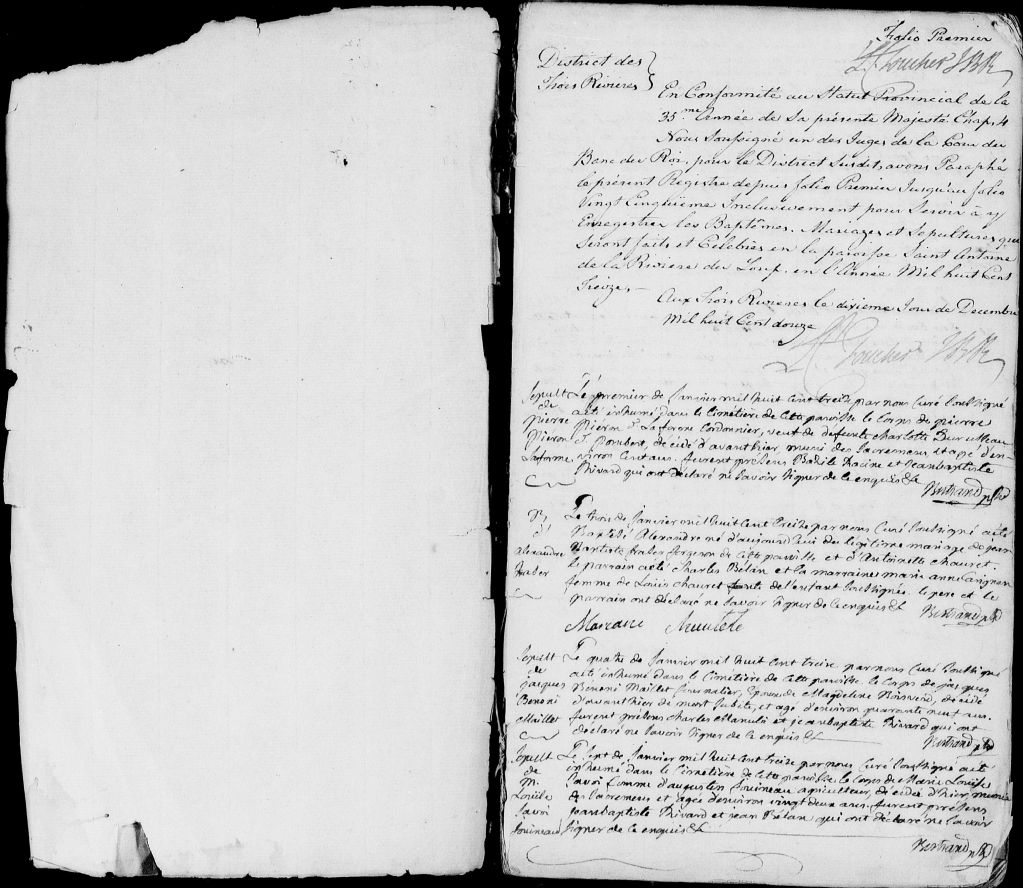 Folio Premier
L. Foucher JBR
District des
Trois Rivieres
En Conformité au Statut Provincial de la
35me Année de Sa présente Majesté Chap. 4
Nous Soussigné un des Juges de la Cour du
Banc du Roi, pour le District Susdit, avons Paraphé
le présent Régistre depuis folio Premier Jusqu'au folio
Vingt Cinquieme Inclusivement pour Servir à y
Enregistrer les Baptêmes, Mariages et Sepultures qui
Seront faits et Célébrés en la paroisse Saint Antoine
de la Riviere du Loup, en l'Année Mil huit Cent
Treize. —
Aux Trois Rivieres le dixieme Jour de Decembre
Mil huit Cent douze
L. Foucher JBR
Sepult
de
pierre
Pieron
Laforme
Le premier de Janvier mil huit cent treize par nous curé soussigné
a été inhumé dans le Cimetière de cette paroisse le corps de pierre
Pieron Cordonnier, veuf de défunte charlotte
décédé d'avant hier, muni des sacremens, et agé d'en-
viron cent ans. furent présens Basile Racine et Jean baptiste
Rivard qui ont déclaré ne savoir signer de ce enquis &
Bertrand ptre
B
d'
alexandre
Le trois de Janvier mil huit cent treize par nous curé soussigné a été
Baptisé Alexandre né d'aujourd'hui du légitime mariage de jean
Baptiste forgeron de cette paroisse et d'Antoinette chauret.
le parrain a été Charles Belan et la marraine marie anne
femme de Louis chauret de l'enfant soussignée. le pere et le
parrain ont déclaré ne savoir signer de ce enquis &
Bertrand ptre
Sepult
de
jacques
Benoni
Maillet
Le quatre de Janvier mil huit cent treize par nous curé soussigné
a été inhumé dans le Cimetière de cette paroisse le corps de jacques
Benoni Maillet journalier, époux de Magdeleine Boisvert, décédé
d'avant hier de mort subite, et agé d'environ quarante neuf ans.
furent présens charles et jean baptiste Rivard qui ont
déclaré ne savoir signer de ce enquis &
Bertrand ptre
Sepult
de
M.
Louise
Savoi
Le sept de Janvier mil huit cent treize par nous curé soussigné a été
inhumé dans le Cimetière de cette paroisse le corps de Marie Louise
Savoi femme d'augustin agriculteur, décédée d'hier, munie
des sacremens et agée d'environ vingt deux ans. furent présens
jean baptiste Rivard et jean Belan qui ont déclaré ne savoir
signer de ce enquis &
Bertrand ptre